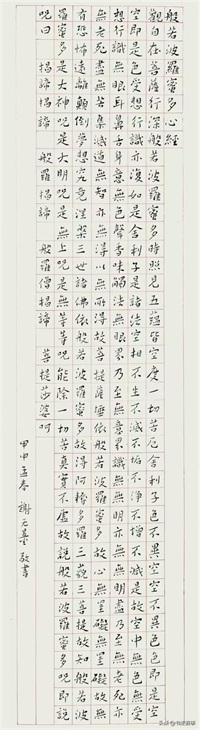 般若波羅蜜多心經
觀自在菩薩行深般若波羅蜜多時照見五蘊皆空度一切苦厄舍利子色不異空空不異色色即是空空即是色受
想行識亦復如是舍利子是諸法空相不生不滅不垢不淨不增不減是故空中無色無受
想行識無眼耳鼻舌身意無色聲香味觸法無眼界乃至無意識界無無明亦無無明盡乃至無老死亦
無老死盡無苦集滅道無智亦無得以無所得故菩提薩埵依般若波羅蜜多故心無罣礙無罣礙故無
有恐怖遠離顛倒夢想究竟涅槃三世諸佛依般若波羅蜜多故得阿耨多羅三藐三菩提故知般若波
羅蜜多是大神呪是大明呪是無上呪是無等等呪能除一切苦真實不虛故說般若波羅蜜多呪即說
呪曰 揭諦揭諦 般羅揭諦 般羅僧揭諦 菩提莎婆呵
甲申孟春 謝无量敬書